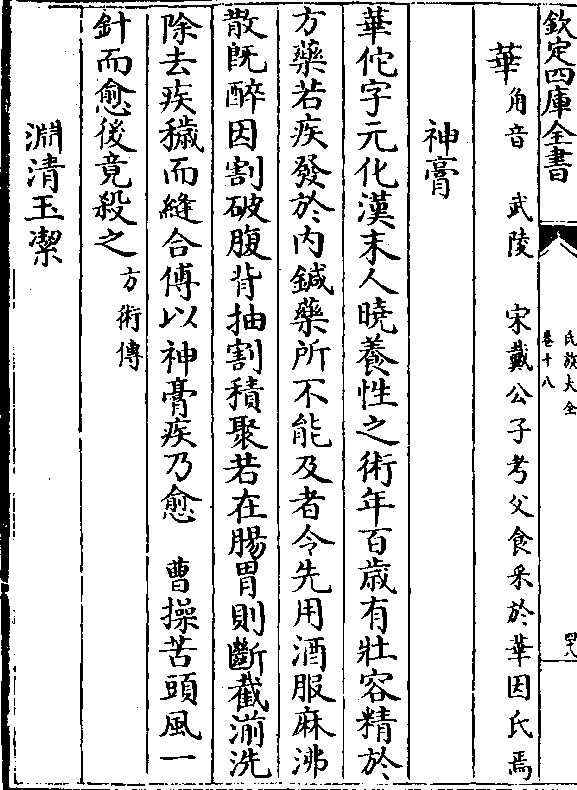 欽定四庫全書
氏族大全
卷十八
四八
華角音　武陵　宋戴公子考父食采於華因氏焉
神膏
華佗字元化漢末人曉養性之術年百歲有壯容精於
方藥若疾發於內鍼藥所不能及者令先用酒服麻沸
散既醉因割破腹背抽割積聚若在腸胃則斷截湔洗
除去疾穢而縫合傅以神膏疾乃愈　曹操苦頭風一
針而愈後竟殺之方術傳
淵清玉潔